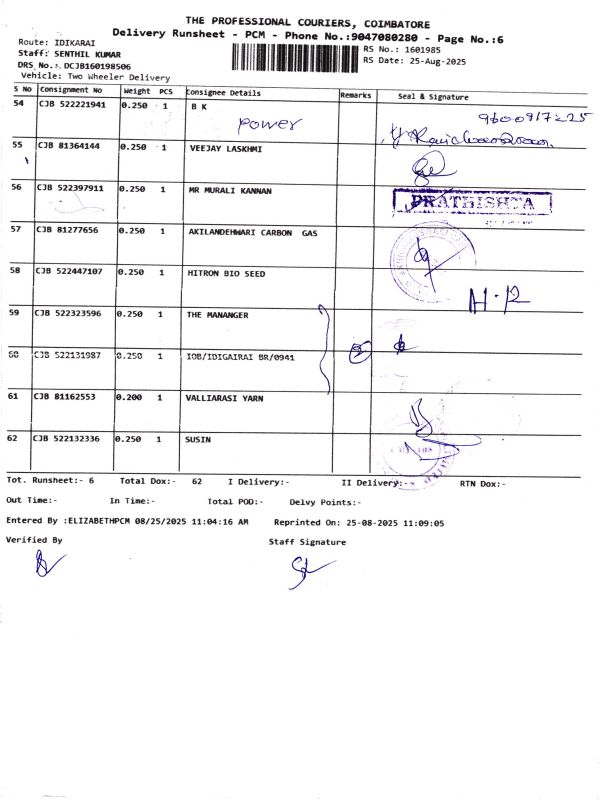 THE PROFESSIONAL COURIERS, COIMBATORE
Delivery Runsheet - PCM - Phone No.:9047080280 - Page No.:6
Route: IDIKARAI
RS No.: 1601985
Staff: SENTHIL KUMAR
RS Date: 25-Aug-2025
DRS No.: DCJB160198506
Vehicle: Two Wheeler Delivery
S No Consignment No Weight PCS Consignee Details Remarks Seal & Signature
54 CJB 522221941 0.250 1 B K
power
9600917225
55 CJB 81364144 0.250 1 VEEJAY LASKHMI
56 CJB 522397911 0.250 1 MR MURALI KANNAN
PRATHISHTA
57 CJB 81277656 0.250 1 AKILANDEHWARI CARBON GAS
58 CJB 522447107 0.250 1 HITRON BIO SEED
H.R
59 CJB 522323596 0.250 1 THE MANANGER
60 CJB 522131987 0.250 1 IOB/IDIGAIRAI BR/0941
2
61 CJB 81162553 0.200 1 VALLIARASI YARN
62 CJB 522132336 0.250 1 SUSIN
Tot. Runsheet:- 6 Total Dox:- 62 I Delivery:- II Delivery:- RTN Dox:-
Out Time:- In Time:- Total POD:- Delvy Points:-
Entered By :ELIZABETHPCM 08/25/2025 11:04:16 AM Reprinted On: 25-08-2025 11:09:05
Verified By Staff Signature